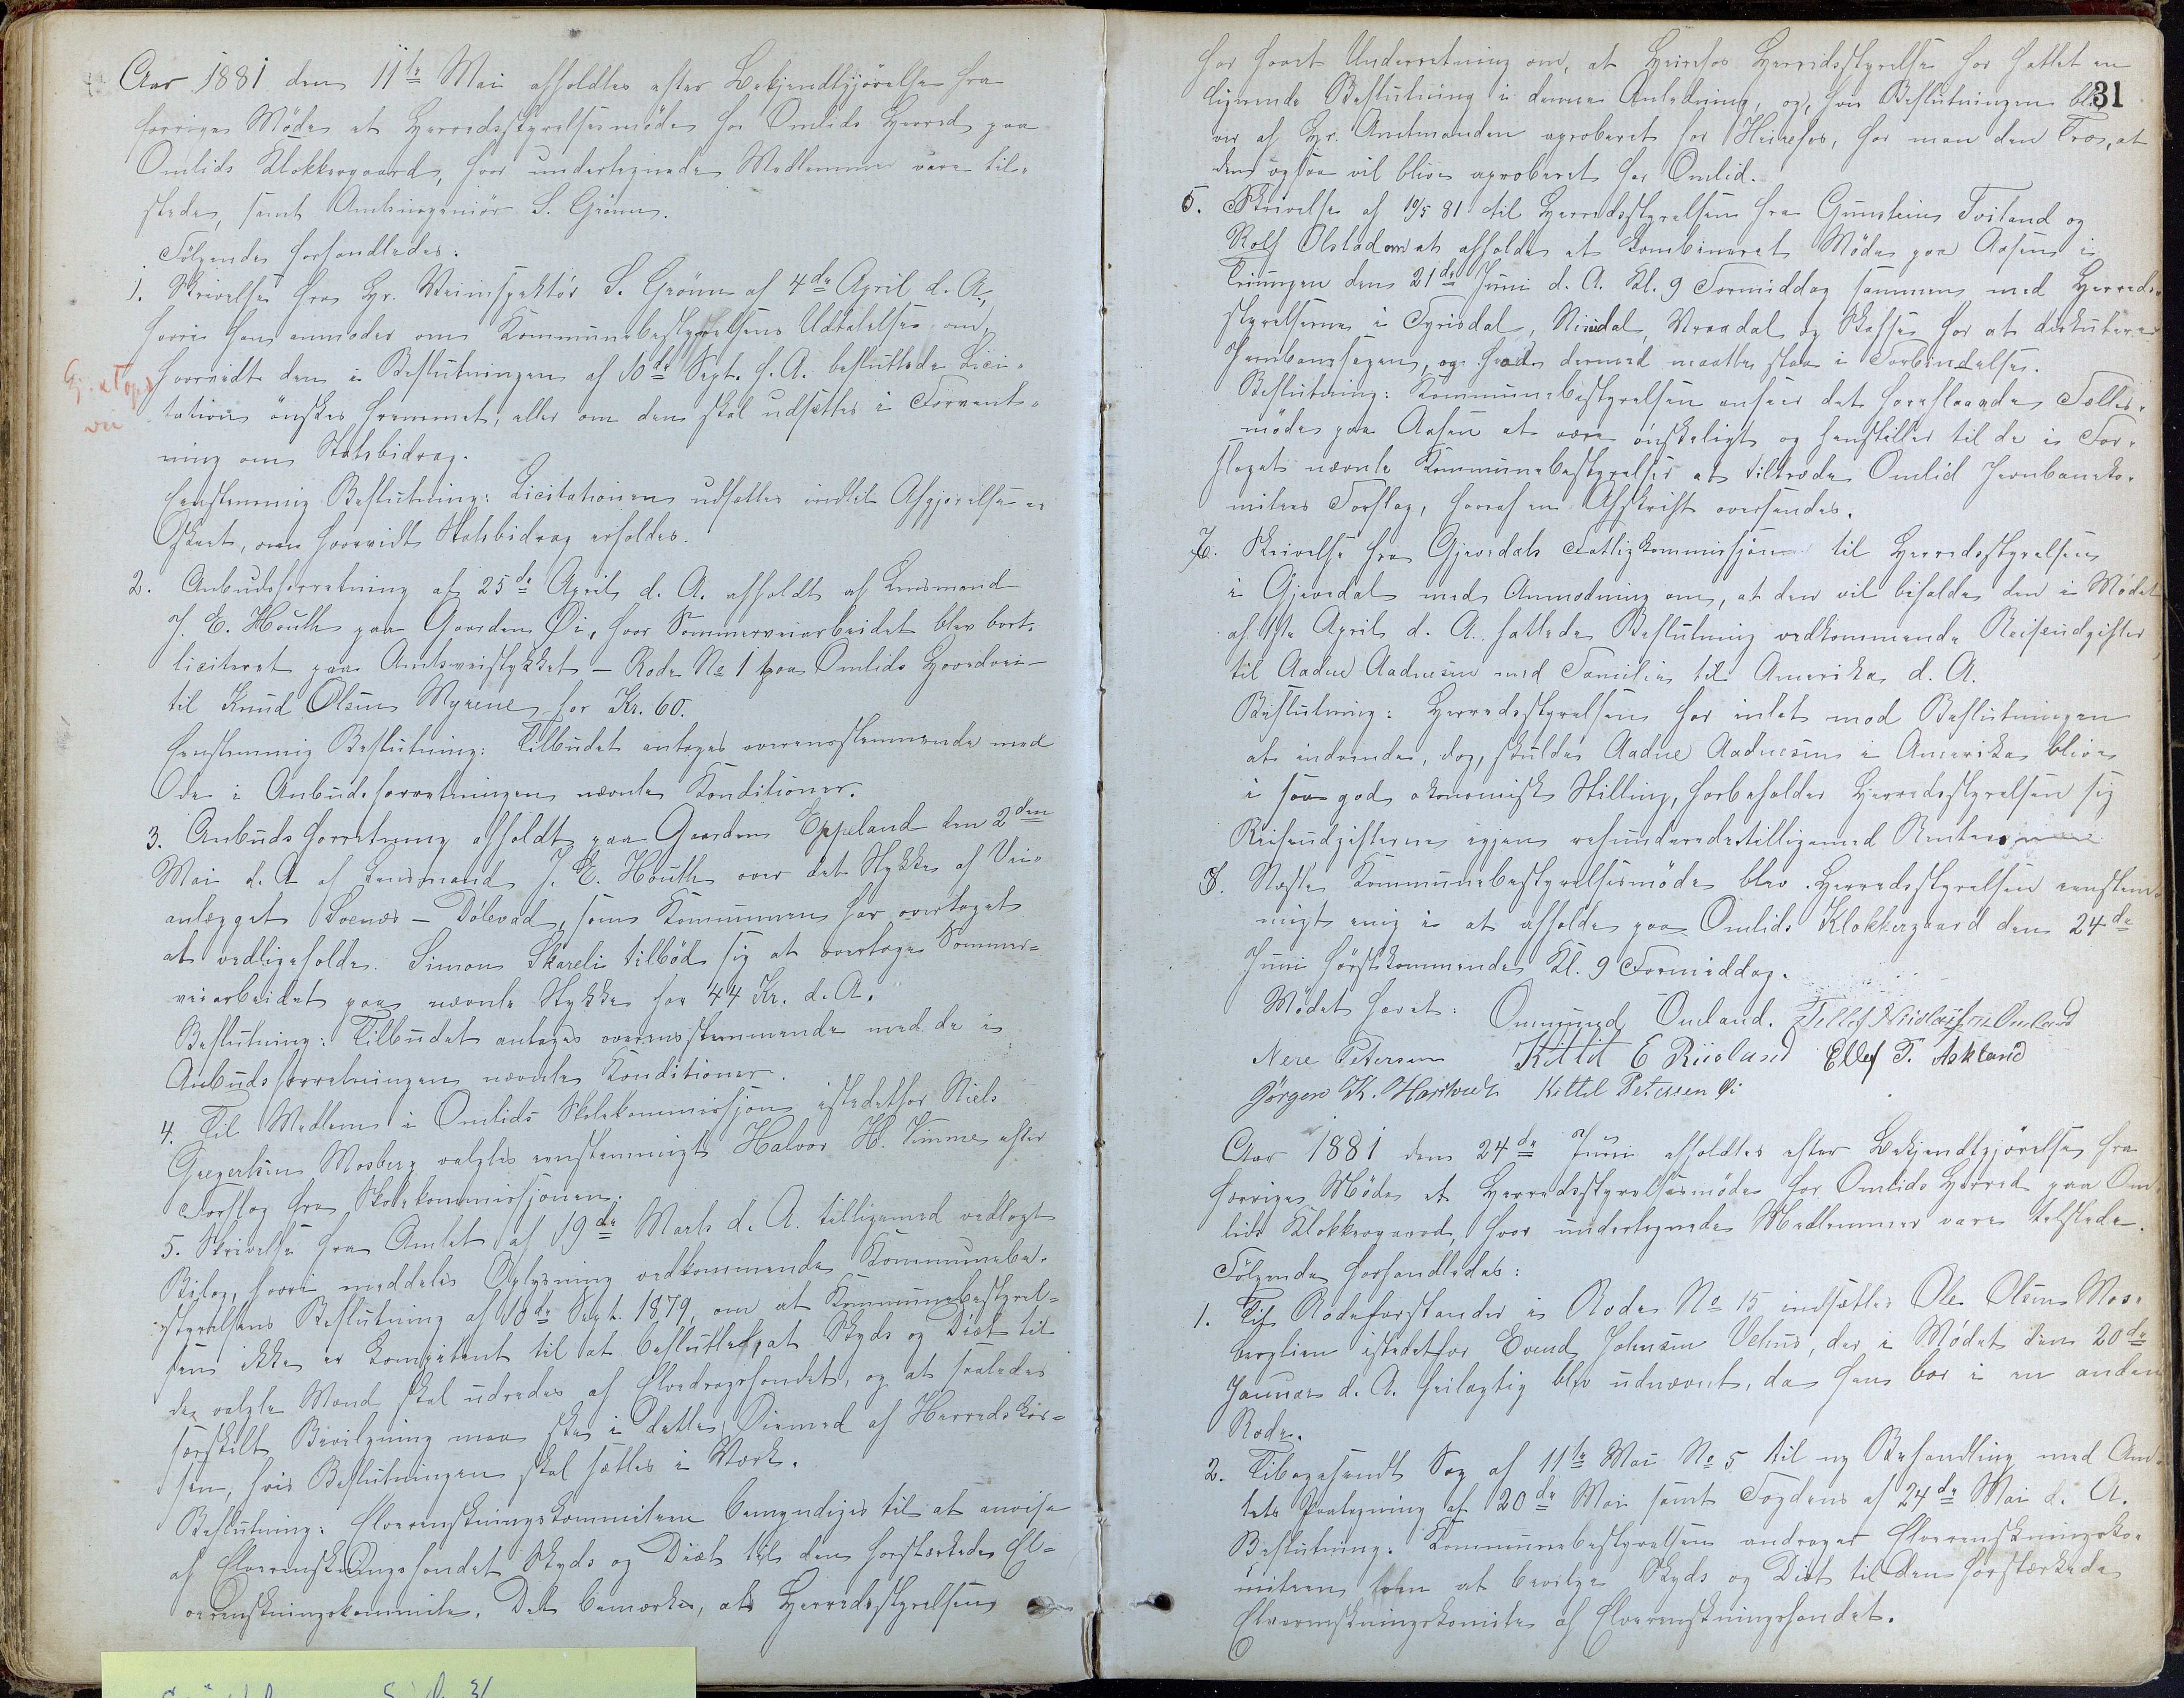 Aar 1881 den 11te Mai afholdtes efter Bekjendtgjörelse fra
forrige Möde et Herredsstyrelsesmöde for Omlids Herred paa
Omlids Klokkergaard, hvor undertegnede Medlemmer vare til-
stede, samt Amtsingeniör S. Grönn.
Fölgende forhandledes:
1. Skrivelse fra Hr. Veiinspektör S. Grönn af 4de April d. A.,
hvori han anmoder om Kommunebestyrelsens Udtalelse om,
hvorvidt den i Beslutningen af 10de Sept. f. A. besluttede Lici-
tation önskes fremmet, eller om den skal udsættes i Forvent-
ning om Statsbidrag.
Eenstemmig Beslutning: Licitationen udsættes indtil Afgjörelse er
skeet, om hvorvidt Statsbidrag erholdes.
2. Anbudsforretning af 25de April d. A. afholdt af Lensmand
J. E. Houth paa Gaarden Öi, hvor Sommerveiarbeidet blev bort-
liciteret paa Amtsveistykket – Rode No 1 paa Omlids Hovedvei –
til Knud Olsen Myrene for Kr. 60.
Eenstemmig Beslutning: Tilbudet antages overensstemmende med
de i Anbudsforretningen nævnte Konditioner.
3. Anbudsforretning afholdt paa Gaarden Eppeland den 2den
Mai d. A. af Lensmand J. E. Houth over det Stykke af Vei-
anlægget Svenæs – Dölevad, som Kommunen har overtaget
at vedligeholde. Simon Skareli tilböd sig at overtage Sommer-
veiarbeidet paa nævnte Stykke for 44 Kr. d. A.
Beslutning: Tilbudet antages overensstemmende med de i
Anbudsforretningen nævnte Konditioner.
4. Til Medlem i Omlids Skolekommissjon istedetfor Niels
Gregersen Mosberg valgtes eenstemmigt Halvor H. Vimme efter
Forslag fra Skolekommissjonen.
5. Skrivelse fra Amtet af 19de Marts d. A. tilligemed vedlagt
Bilag, hvori meddeles Oplysning vedkommende Kommunebe-
styrelsens Beslutning af 10de Sept. 1879, om at Kommunebestyrel-
sen ikke er kompetent til at beslutte, at Skyds og Diæt til
den valgte Mand skal udredes af Elvedragsfondet, og at saaledes
særskilt Bevilgning maa ske i dette Öiemed af Herredskas-
sen, hvis Beslutningen skal sættes i Værk.
Beslutning: Elverenskningskommiteen bemyndiges til at anvise
af Elverenskningsfondet Skyds og Diæt til den forstærkede El-
verenskningskommite. Det bemærkes, at Herredsstyrelsen
31
har hørt Underretning om, at Hereføs Herredsstyrelse har fattet en
lignende Beslutning i denne Anledning, og, hvis Beslutningen bli-
ver af Hr. Amtmanden aproberet for Hereføs, har man den Tro, at
den ogsaa vil blive aproberet for Omlid.
5. Skrivelse af 10/5 81 til Herredsstyrelsen fra Gunstein Tveiland og
Rolf Olstad om at afholde et kombineret Möde paa Aasen i
Treungen den 21de Juni d. A. Kl. 9 Formiddag sammen med Herreds-
styrelserne i Fyrisdal, Nissedal, Vraadal og Skafse for at diskutere
Jernbanesagen, og hvad dermed maatte staa i Forbindelse.
Beslutning: Kommunebestyrelsen anseer det foreslaaede Fælles-
möde paa Aasen at være önskeligt og henstiller til de i For-
slaget nævnte Kommunebestyrelser at tiltræde Omlid Jernbaneko-
mitees Forslag, hvoraf en Afskrift oversendes.
7. Skrivelse fra Gjøvedals Fattigkommissjon til Herredsstyrelsen
i Gjøvedal med Anmodning om, at den vil bifalde den i Mödet
af 1ste April d. A. fattede Beslutning vedkommende Reiseudgifter
til Aadne Aadnesen med Familie til Amerika d. A.
Beslutning: Herredsstyrelsen har intet mod Beslutningen
at indvende, dog, skulde Aadne Aadnesen i Amerika blive
i saa god økonomisk Stilling, forbeholder Herredsstyrelsen sig
Reiseudgifterne igjen refunderede tilligemed Renter.
8. Næste Kommunebestyrelsesmöde blev Herredsstyrelsen eenstem-
migt enig i at afholde paa Omlids Klokkergaard den 24de
Juni förstkommende Kl. 9 Formiddag.
Mödet hævet: Ommund Omland. Tellef Nicolaisen Omland
Nere Petersen Kittil E Riisland Ellef T. Askland
Jörgen K. Hartvedt Kittel Petersen Öi
Aar 1881 den 24de Juni afholdtes efter Bekjendtgjörelse fra
forrige Möde et Herredsstyrelsesmöde for Omlids Herred paa Om-
lids Klokkergaard, hvor undertegnede Medlemmer vare tilstede.
Fölgende forhandledes:
1. Til Rodeforstander i Rode No 15 indsættes Ole Olsen Mos-
berglien istedetfor Evend Johnsen Vehus, der i Mödet den 20de
Januar d. A. feilagtig blev udnævnt, da han bor i en anden
Rode.
2. Tilbagesendt Sag af 11te Mai No 5 til ny Behandling med Am-
tets Paategning af 20de Mai samt Fogdens af 24de Mai d. A.
Beslutning: Kommunebestyrelsen andrager Elverenskningsko-
miteen om at bevilge Skyds og Diæt til den forstærkede
Elverenskningskomite af Elverenskningsfondet.